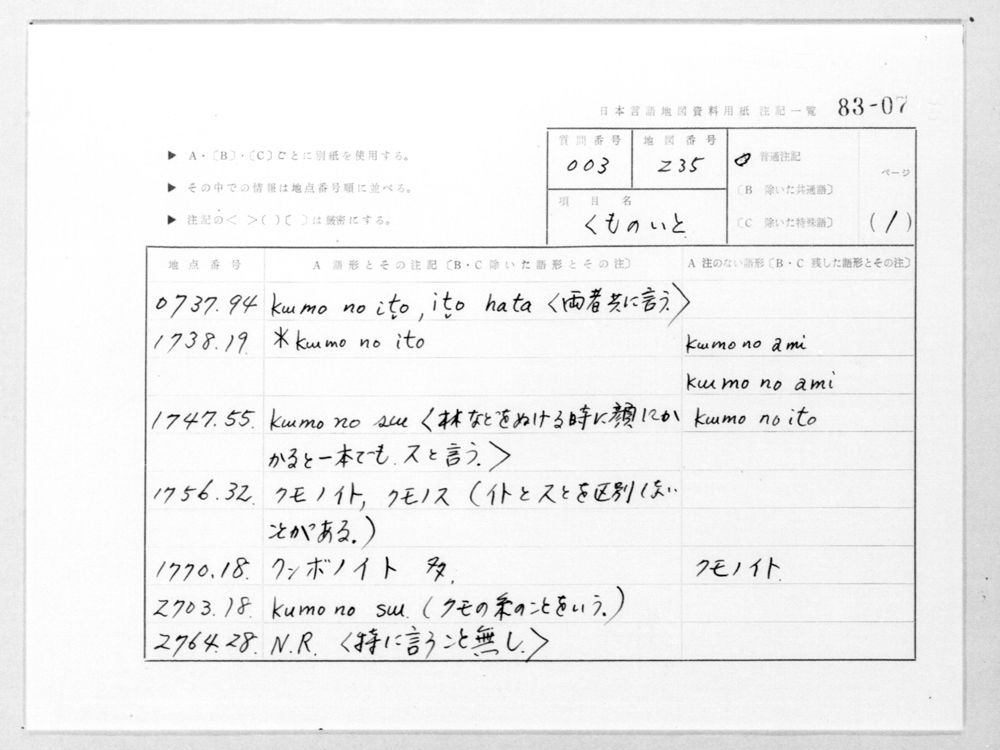 日本言語地図資料用紙 注記一覧 83-07
▶ A・〔B〕・〔C〕ごとに別紙を使用する。
▶ その中での情報は地点番号順に並べる。
▶ 注記の< >( )〔 〕は厳密にする。
質問番号 地図番号
003 235
項目名
くものいと
普通注記
〔B 除いた共通語〕
〔C 除いた特殊語〕
ページ
(1)
地点番号 A 語形とその注記〔B・C除いた語形とその注〕 A 注のない語形〔B・C 残した語形とその注〕
0737.94 kɯmo no ito, ito hata <両者共に言う>
1738.19. *kɯmo no ito kɯmo no ami
kɯmo no ami
1747.55. kɯmo no sɯ <林などをぬける時に顔にか kɯmo no ito
かると一本でも、スと言う。>
1756.32. クモノイト, クモノス (イトとスとを区別しない
ことがある。)
1770.18. クンボノイト 多. クモノイト
2703.18. kumo no sɯ. (クモの糸のことをいう。)
2764.28. N.R. <特に言うこと無し。>